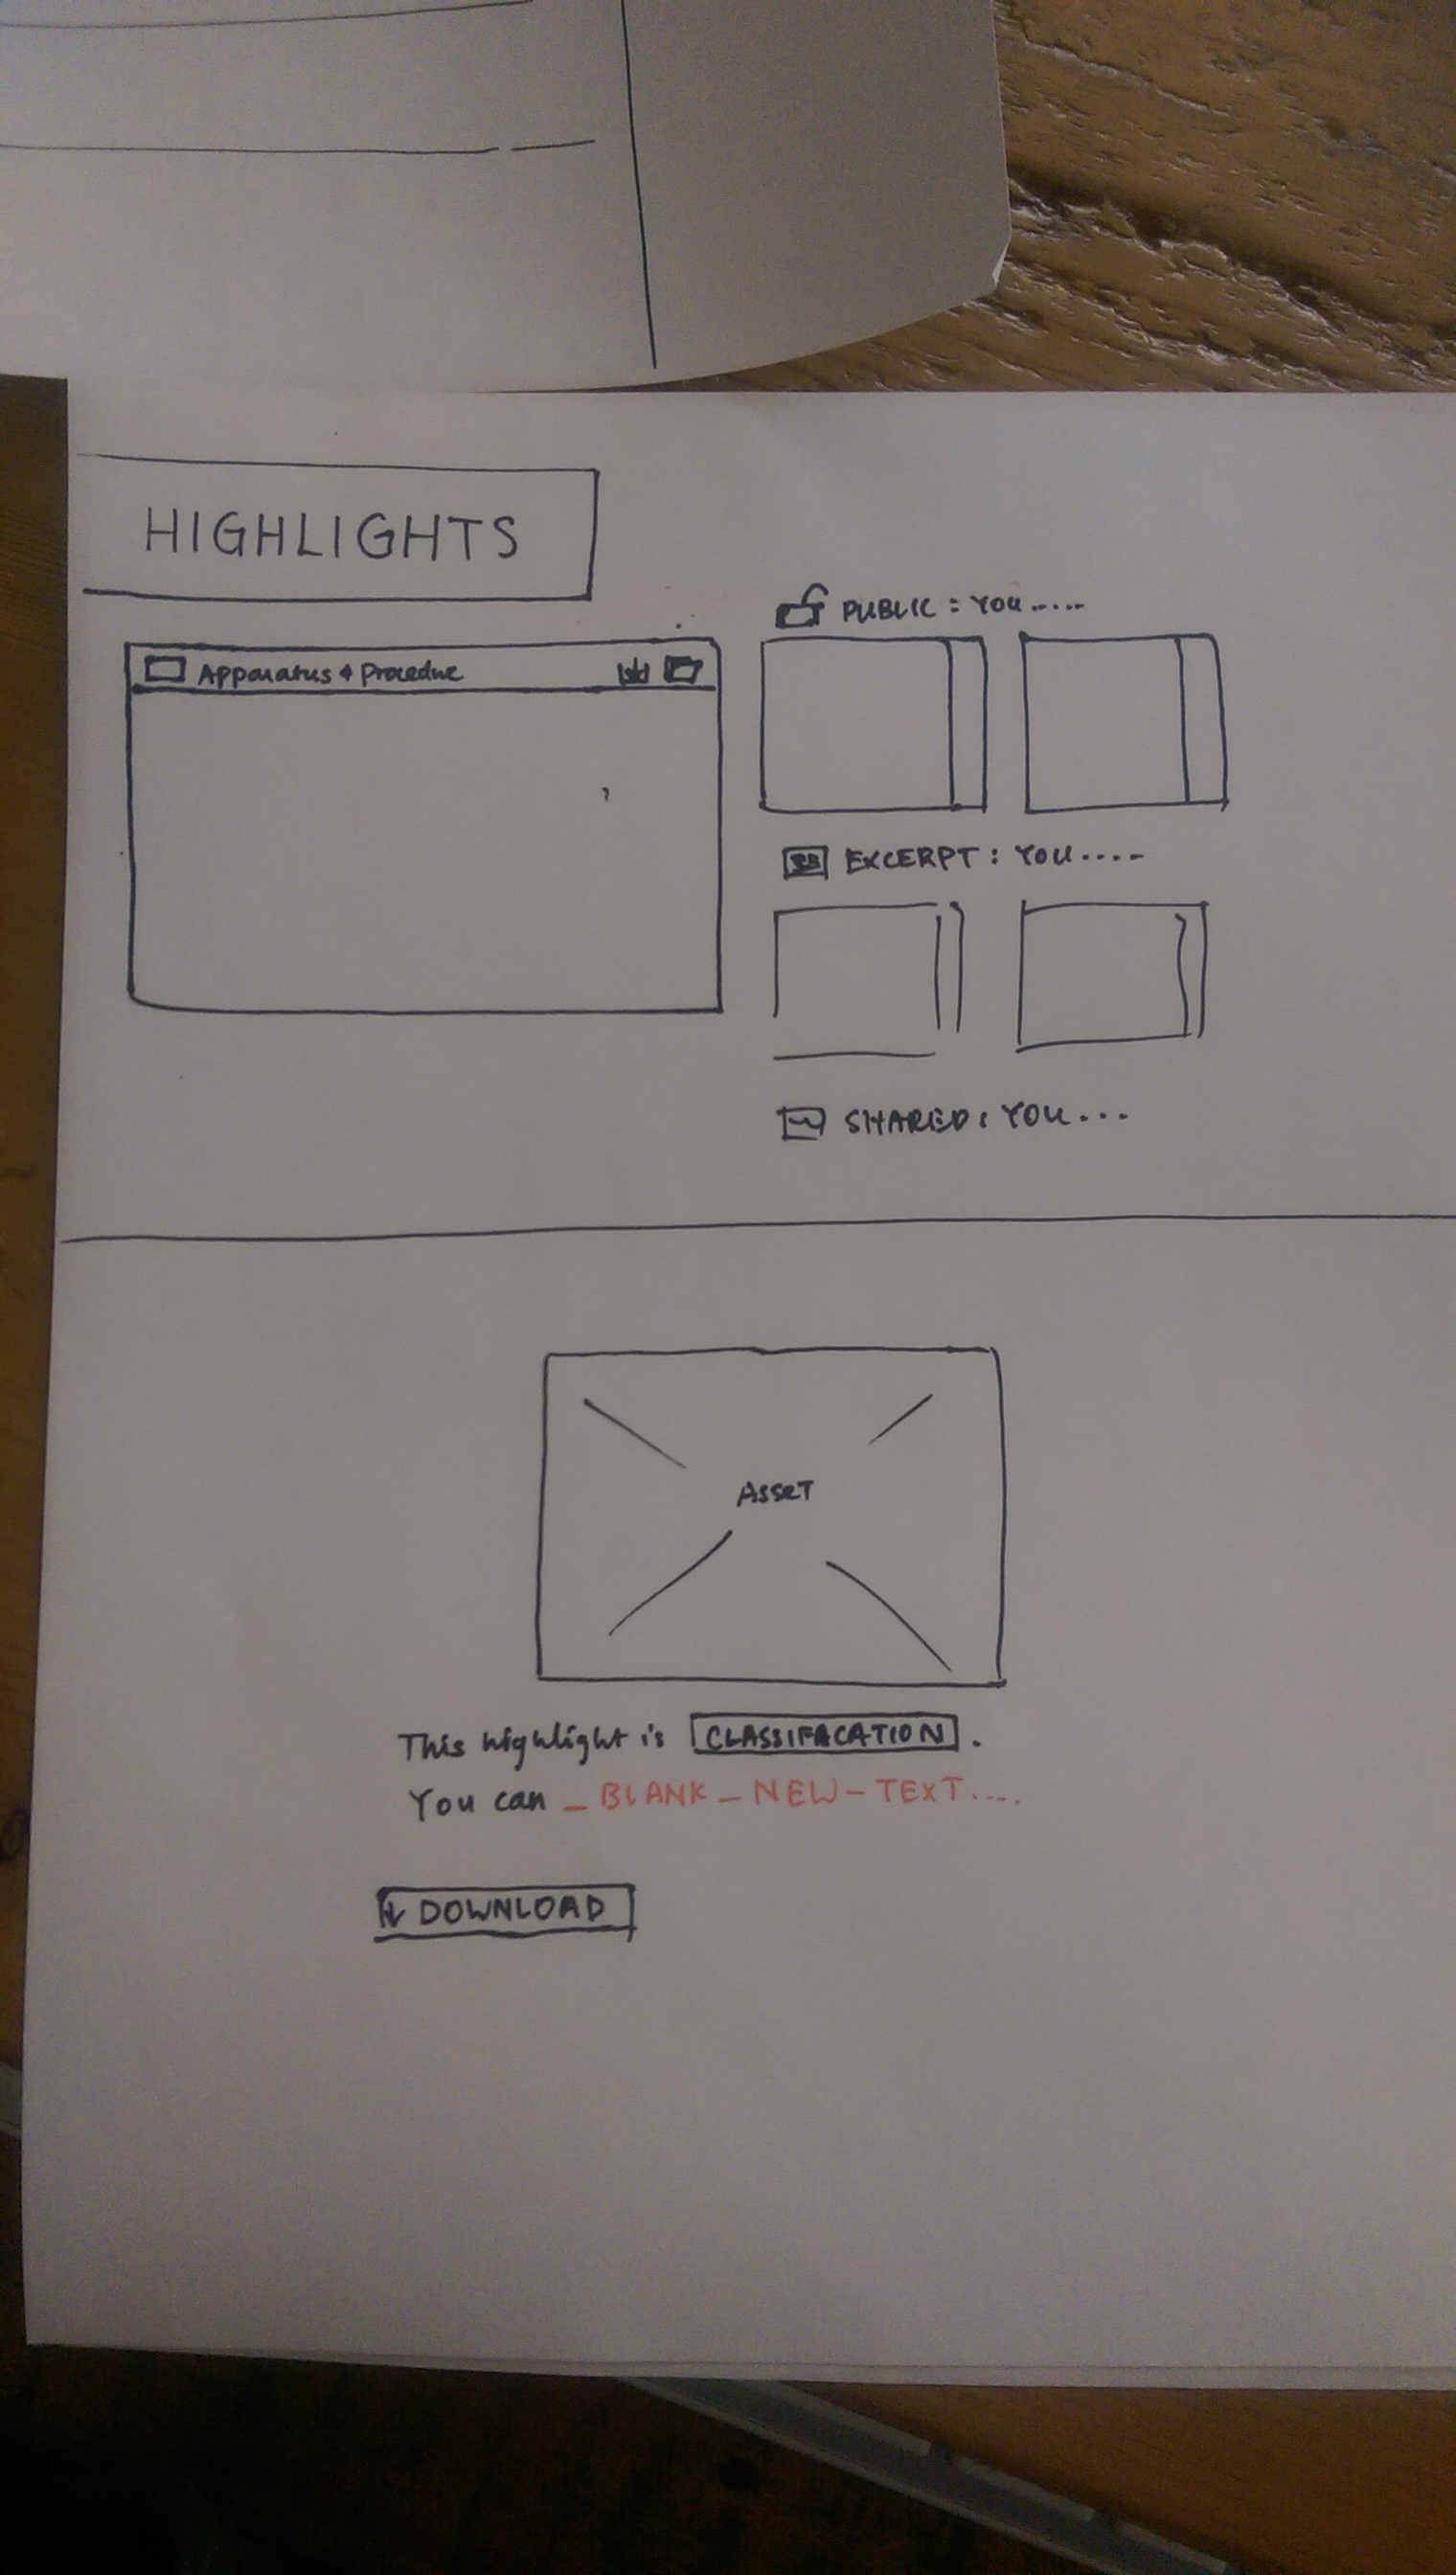 HIGHLIGHTS
Apparatus & Procedure
PUBLIC : YOU .....
EXCERPT : YOU ....
SHARED : YOU ...
ASSET
This highlight is CLASSIFACATION .
You can _ BLANK _ NEW - TEXT ....
DOWNLOAD